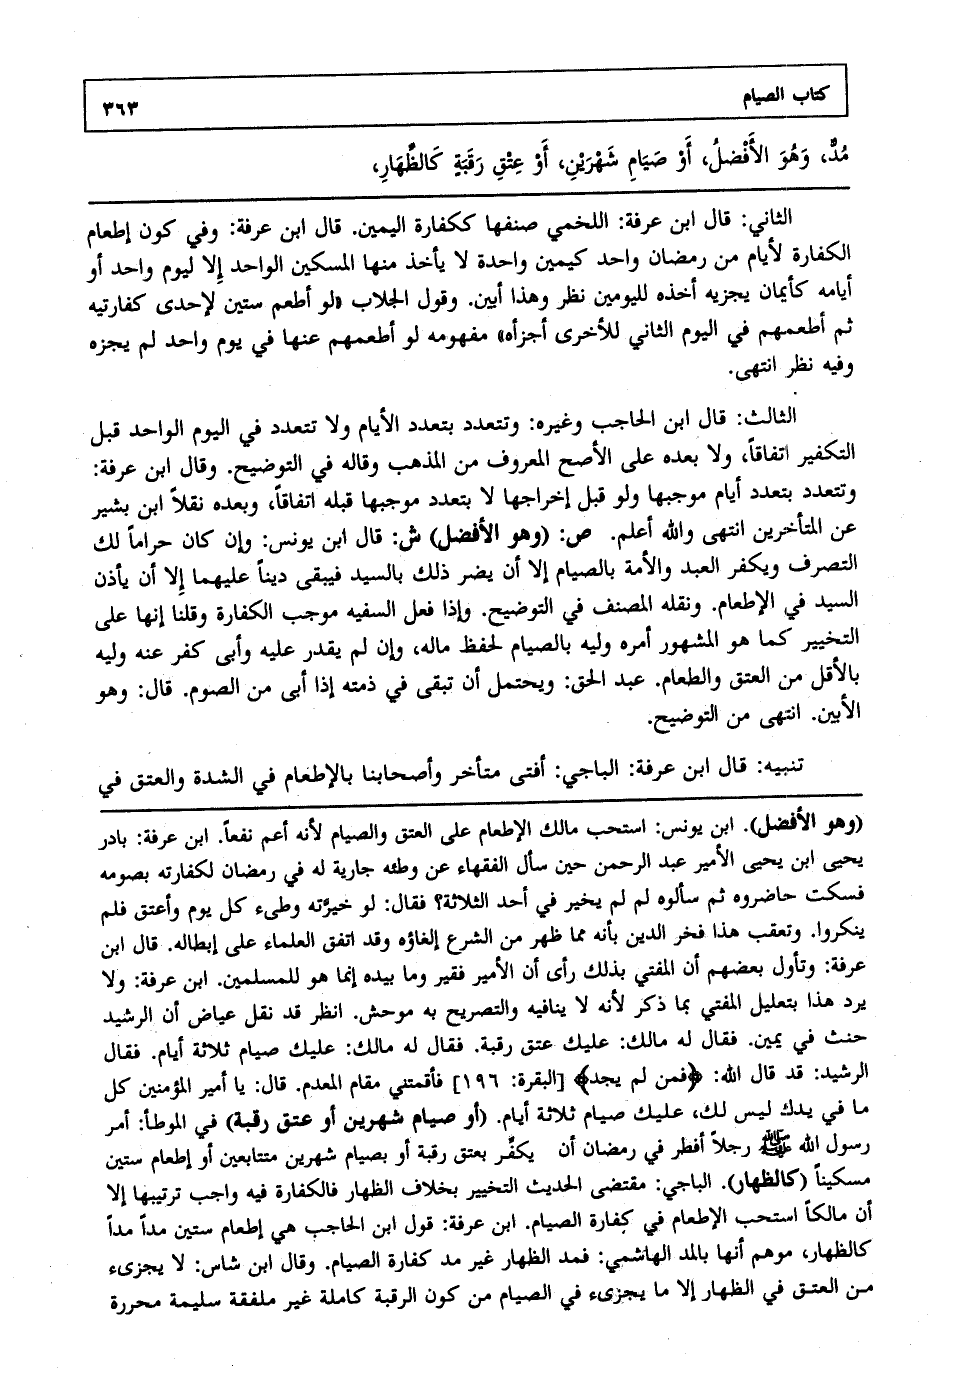 كتاب الصيام ٣٦٣
مُدٌّ، وَهُوَ الأَفْضلُ، أَوْ صَيَامِ شَهْرَيْنِ، أَوْ عِتْقِ رَقَبَةٍ كَالظِّهَارِ،
الثاني: قال ابن عرفة: اللخمي صنفها ككفارة اليمين. قال ابن عرفة: وفي كون إطعام
الكفارة لأيام من رمضان واحد كيمين واحدة لا يأخذ منها المسكين الواحد إلا ليوم واحد أو
أيامه كأيمان يجزيه أخذه لليومين نظر وهذا أبين. وقول الجلاب «لو أطعم ستين لإحدى كفارتيه
ثم أطعمهم في اليوم الثاني للأخرى أجزأه» مفهومه لو أطعمهم عنها في يوم واحد لم يجزه
وفيه نظر انتهى.
الثالث: قال ابن الحاجب وغيره: وتتعدد بتعدد الأيام ولا تتعدد في اليوم الواحد قبل
التكفير اتفاقاً، ولا بعده على الأصح المعروف من المذهب وقاله في التوضيح. وقال ابن عرفة:
وتتعدد بتعدد أيام موجبها ولو قبل إخراجها لا بتعدد موجبها قبله اتفاقاً، وبعده نقلاً ابن بشير
عن المتأخرين انتهى والله أعلم. ص: (وهو الأفضل) ش: قال ابن يونس: وإن كان حراماً لك
التصرف ويكفر العبد والأمة بالصيام إلا أن يضر ذلك بالسيد فيبقى ديناً عليهما إلا أن يأذن
السيد في الإطعام. ونقله المصنف في التوضيح. وإذا فعل السفيه موجب الكفارة وقلنا إنها على
التخيير كما هو المشهور أمره وليه بالصيام لحفظ ماله، وإن لم يقدر عليه وأبى كفر عنه وليه
بالأقل من العتق والطعام. عبد الحق: ويحتمل أن تبقى في ذمته إذا أبى من الصوم. قال: وهو
الأبين. انتهى من التوضيح.
تنبيه: قال ابن عرفة: الباجي: أفتى متأخر وأصحابنا بالإطعام في الشدة والعتق في
(وهو الأفضل). ابن يونس: استحب مالك الإطعام على العتق والصيام لأنه أعم نفعاً. ابن عرفة: بادر
يحيى ابن يحيى الأمير عبد الرحمن حين سأل الفقهاء عن وطئه جارية له في رمضان لكفارته بصومه
فسكت حاضروه ثم سألوه لم لم يخير في أحد الثلاثة؟ فقال: لو خيرّته وطىء كل يوم وأعتق فلم
ينكروا. وتعقب هذا فخر الدين بأنه مما ظهر من الشرع إلغاؤه وقد اتفق العلماء على إبطاله. قال ابن
عرفة: وتأول بعضهم أن المفتي بذلك رأى أن الأمير فقير وما بيده إنما هو للمسلمين. ابن عرفة: ولا
يرد هذا بتعليل المفتي بما ذكر لأنه لا ينافيه والتصريح به موحش. انظر قد نقل عياض أن الرشيد
حنث في يمين. فقال له مالك: عليك عتق رقبة. فقال له مالك: عليك صيام ثلاثة أيام. فقال
الرشيد: قد قال الله: ﴿فمن لم يجد﴾ [البقرة: ١٩٦] فأقمتني مقام المعدم. قال: يا أمير المؤمنين كل
ما في يدك ليس لك، عليك صيام ثلاثة أيام. (أو صيام شهرين أو عتق رقبة) في الموطأ: أمر
رسول الله ﷺ رجلاً أفطر في رمضان أن يكفّر بعتق رقبة أو بصيام شهرين متتابعين أو إطعام ستين
مسكيناً (كالظهار). الباجي: مقتضى الحديث التخيير بخلاف الظهار فالكفارة فيه واجب ترتيبها إلا
أن مالكاً استحب الإطعام في كفارة الصيام. ابن عرفة: قول ابن الحاجب هي إطعام ستين مداً مداً
كالظهار، موهم أنها بالمد الهاشمي: فمد الظهار غير مد كفارة الصيام. وقال ابن شاس: لا يجزىء
من العتق في الظهار إلا ما يجزىء في الصيام من كون الرقبة كاملة غير ملفقة سليمة محررة